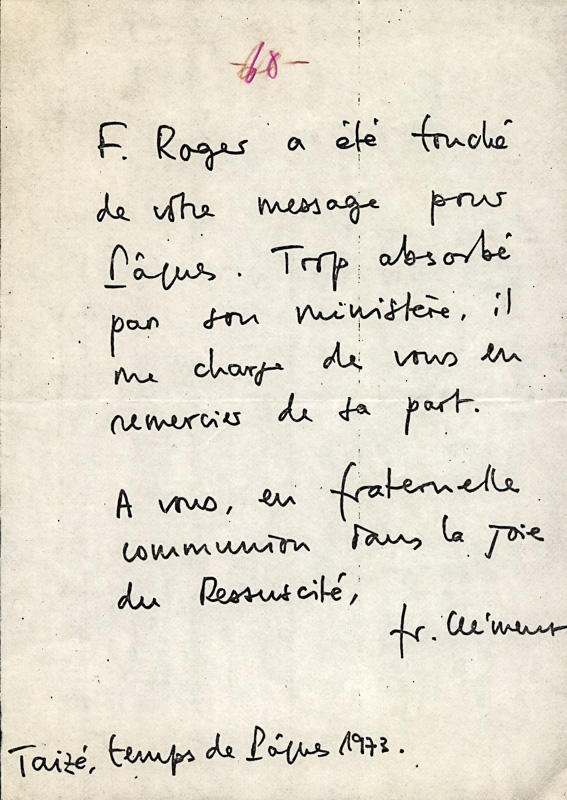 -68-
F. Roger a été touché
de votre message pour
Pâques. Trop absorbé
par son ministère, il
me charge de vous en
remercier de sa part.
A vous, en fraternelle
communion dans la joie
du Ressuscité,
fr. Clément
Taizé, temps de Pâques 1973.